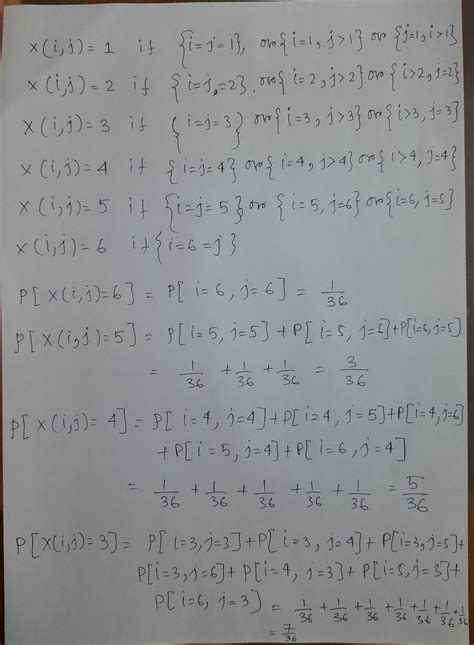 X(i,j) = 1 if {i=j=1}, or {i=1, j>1} or {j=1, i>1}
X(i,j) = 2 if {i=j=2} or {i=2, j>2} or {i>2, j=2}
X(i,j) = 3 if {i=j=3} or {i=3, j>3} or {i>3, j=3}
X(i,j) = 4 if {i=j=4} or {i=4, j>4} or {i>4, j=4}
X(i,j) = 5 if {i=j=5}, or {i=5, j=6} or {i=6, j=5}
X(i,j) = 6 if {i=6=j}
P[X(i,j)=6] = P[i=6, j=6] = 1/36
P[X(i,j)=5] = P[i=5, j=5] + P[i=5, j=6] + P[i=6, j=5]
= 1/36 + 1/36 + 1/36 = 3/36
P[X(i,j)=4] = P[i=4, j=4] + P[i=4, j=5] + P[i=4, j=6]
+ P[i=5, j=4] + P[i=6, j=4]
= 1/36 + 1/36 + 1/36 + 1/36 + 1/36 = 5/36
P[X(i,j)=3] = P[i=3, j=3] + P[i=3, j=4] + P[i=3, j=5] +
P[i=3, j=6] + P[i=4, j=3] + P[i=5, j=3] +
P[i=6, j=3) = 1/36 + 1/36 + 1/36 + 1/36 + 1/36 + 1/36 + 1/36
= 7/36